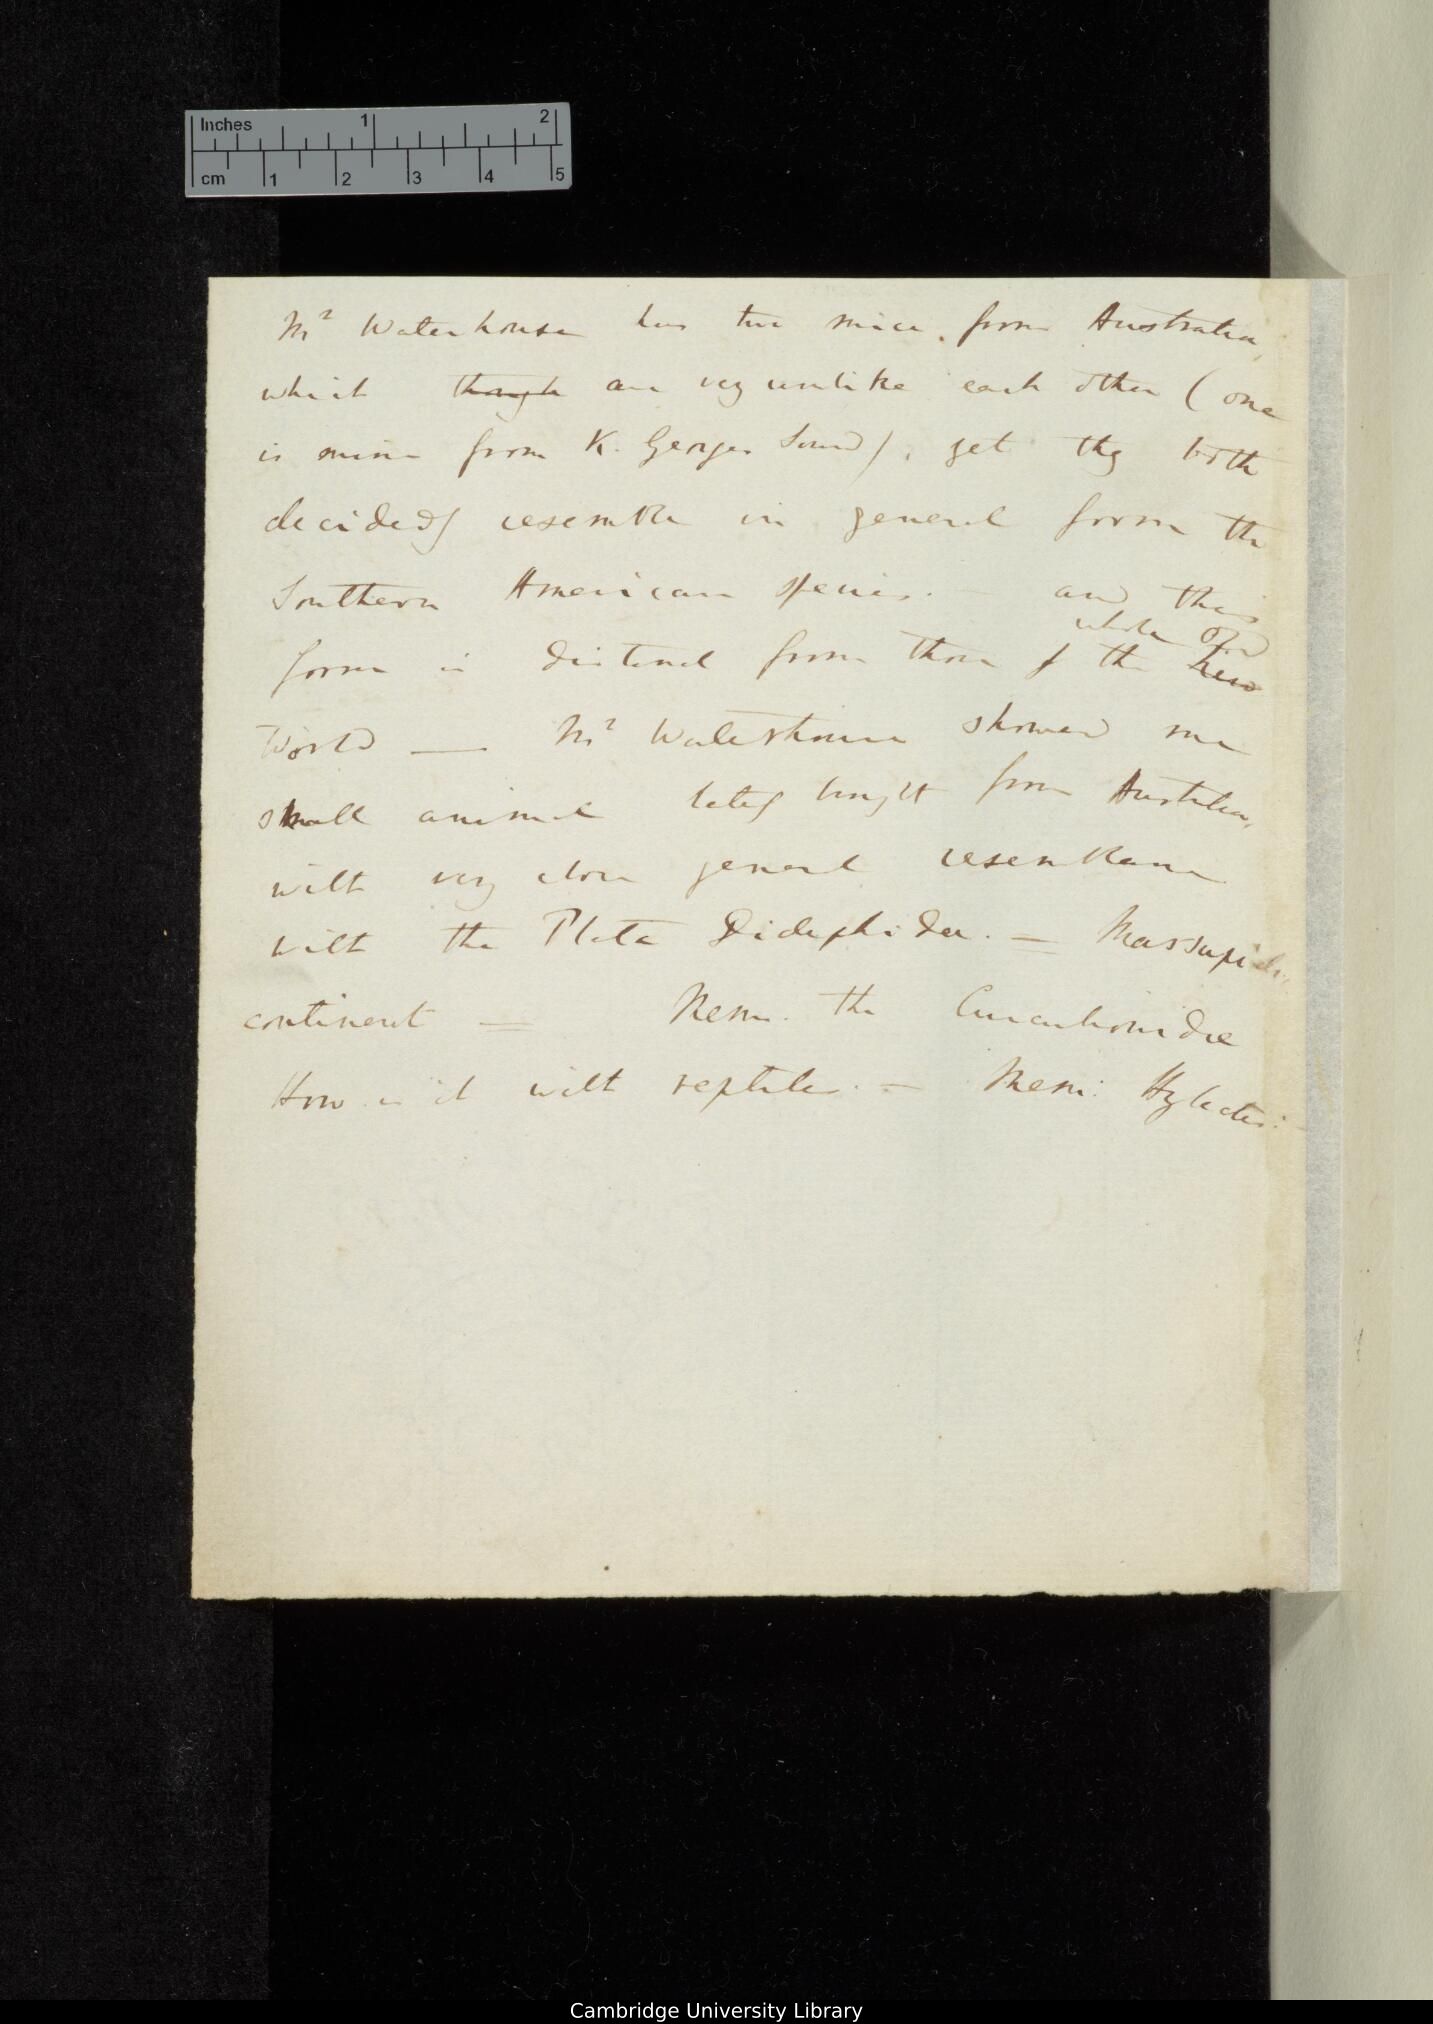 Inches 1 2
cm 1 2 3 4 5
Mr Waterhouse has two mice, from Australia,
which though are very unlike each other (one
is mine from K. Georges Sound), yet they both
decidedly resemble in general form the
Southern American species. — and this
whole old
form is distinct from those of the New
World — Mr Waterhouse showed me
small animal lately brought from Australia,
with very close general resemblance
with the Plata Didelphidae. — Marsupial
continent — Mem. the Curculionidae
How is it with reptiles. — Mem:
Cambridge University Library